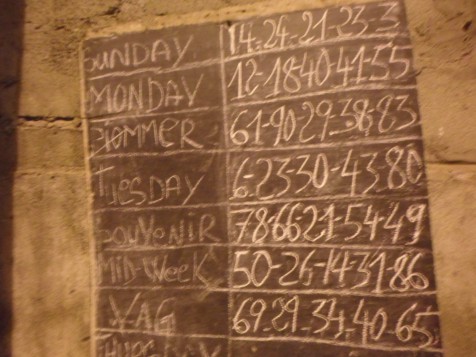 SUNDAY 14-24-21-23-3
MONDAY 12-18-40-41-55
61-90-29-38-83
TUESDAY 6-23-30-43-80
SOUVENIR 78-66-21-54-49
Mid-WeeK 50-26-14-31-86
VAG 69-29-34-40-65
THURSDAY